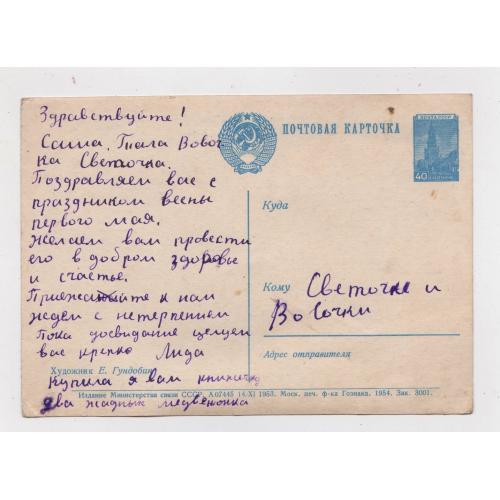 Здравствуйте!
Саша, Тала Вовоч
ка Светочка.
Поздравляем вас с
праздником весны
первого мая.
Желаем вам провести
его в добром здоровье
и счастье.
Приежайте к нам
ждем с нетерпением
Пока досвидание целуем
вас крепко Лида
Художник Е. Гундобин
Купила я вам книжечку
два жадных медвежонка
ПОЧТОВАЯ КАРТОЧКА
ПОЧТА СССР
40
Куда
Кому Светочке и
Вовочки
Адрес отправителя
Издание Министерства связи СССР. А07445 14/XI 1953. Моск. печ. ф-ка Гознака. 1954. Зак. 3001.